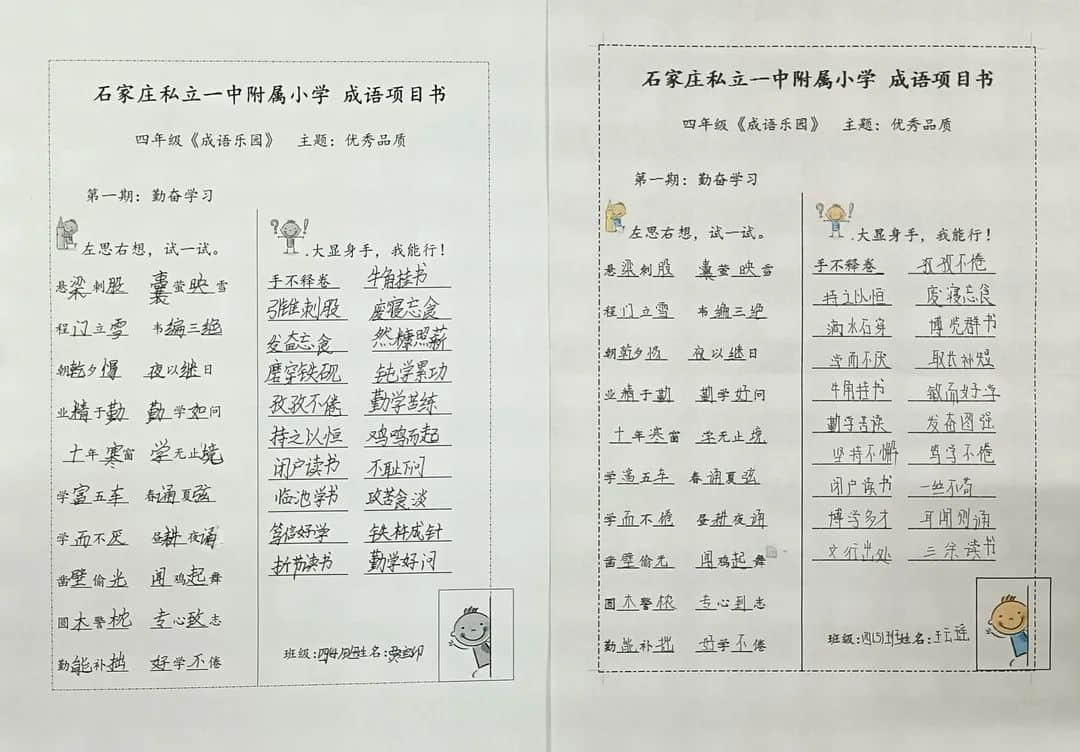 石家庄私立一中附属小学 成语项目书
四年级《成语乐园》 主题：优秀品质
第一期：勤奋学习
左思右想，试一试。
悬梁刺股 囊萤映雪
程门立雪 韦编三绝
朝乾夕惕 夜以继日
业精于勤 勤学如问
十年寒窗 学无止境
学富五车 春诵夏弦
学而不厌 昼耕夜诵
凿壁偷光 闻鸡起舞
圆木警枕 专心致志
勤能补拙 好学不倦
.大显身手，我能行！
手不释卷 牛角挂书
引锥刺股 废寝忘食
发奋忘食 然糠照薪
磨穿铁砚 钝学累功
孜孜不倦 勤学苦练
持之以恒 鸡鸣而起
闭户读书 不耻下问
临池学书 攻苦食淡
笃信好学 铁杵成针
折节读书 勤学好问
班级： 姓名：
石家庄私立一中附属小学 成语项目书
四年级《成语乐园》 主题：优秀品质
第一期：勤奋学习
左思右想，试一试。
悬梁刺股 囊萤映雪
程门立雪 韦编三绝
朝乾夕惕 夜以继日
业精于勤 勤学好问
十年寒窗 学无止境
学富五车 春诵夏弦
学而不倦 昼耕夜诵
凿壁偷光 闻鸡起舞
圆木警枕 专心到志
勤能补拙 好学不倦
.大显身手，我能行！
手不释卷 孜孜不倦
持之以恒 废寝忘食
滴水石穿 博览群书
学而不厌 取长补短
牛角挂书 敏而好学
勤学苦读 发奋图强
坚持不懈 笃学不倦
闭户读书 一丝不苟
博学多才 耳闻则诵
文行出处 三余读书
班级：四(5)班姓名：王云遥